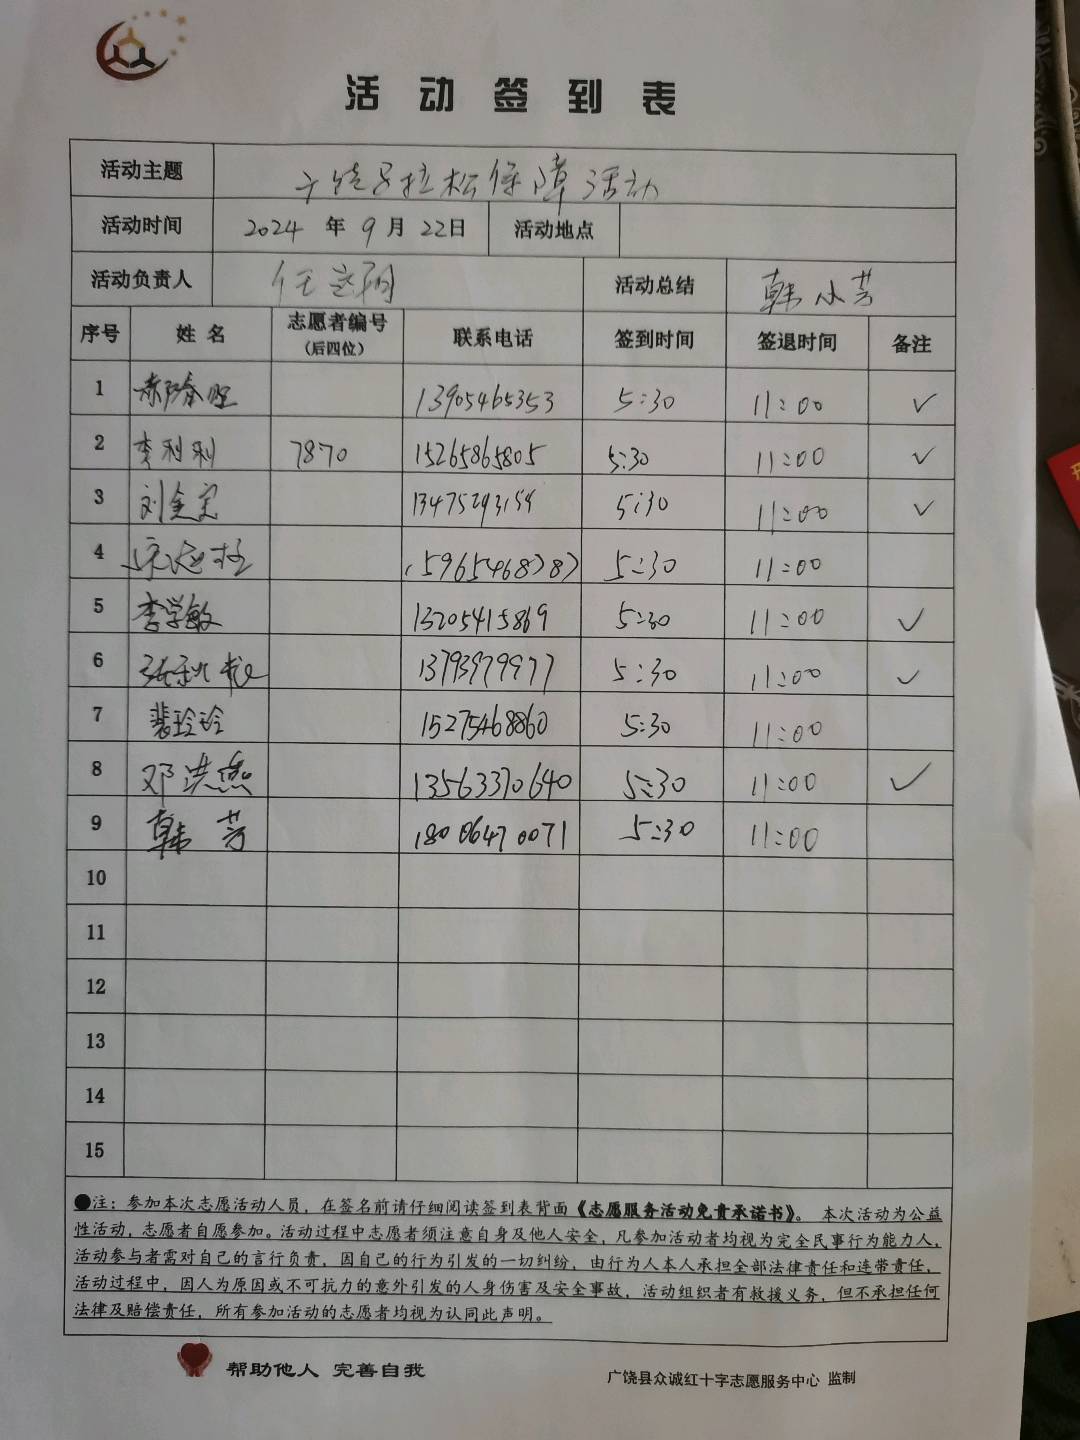 活动签到表
活动主题 广饶马拉松保障活动
活动时间 2024 年 9 月 22日 活动地点
活动负责人 任 活动总结 韩小芳
序号 姓名 志愿者编号（后四位） 联系电话 签到时间 签退时间 备注
1 13905465353 5:30 11:00 ✓
2 李利利 7870 15265865805 5:30 11:00 ✓
3 刘金宝 5:30 11:00 ✓
4 15965468787 5:30 11:00
5 李学敏 13205415869 5:30 11:00 ✓
6 13793979977 5:30 11:00 ✓
7 裴玲玲 15275468860 5:30 11:00
8 邓洪燕 13563370640 5:30 11:00 ✓
9 韩芳 18006470071 5:30 11:00
10
11
12
13
14
15
●注：参加本次志愿活动人员，在签名前请仔细阅读签到表背面《志愿服务活动免责承诺书》。本次活动为公益
性活动，志愿者自愿参加。活动过程中志愿者须注意自身及他人安全，凡参加活动者均视为完全民事行为能力人，
活动参与者需对自己的言行负责，因自己的行为引发的一切纠纷，由行为人本人承担全部法律责任和连带责任，
活动过程中，因人为原因或不可抗力的意外引发的人身伤害及安全事故，活动组织者有救援义务，但不承担任何
法律及赔偿责任，所有参加活动的志愿者均视为认同此声明。
帮助他人 完善自我
广饶县众诚红十字志愿服务中心 监制